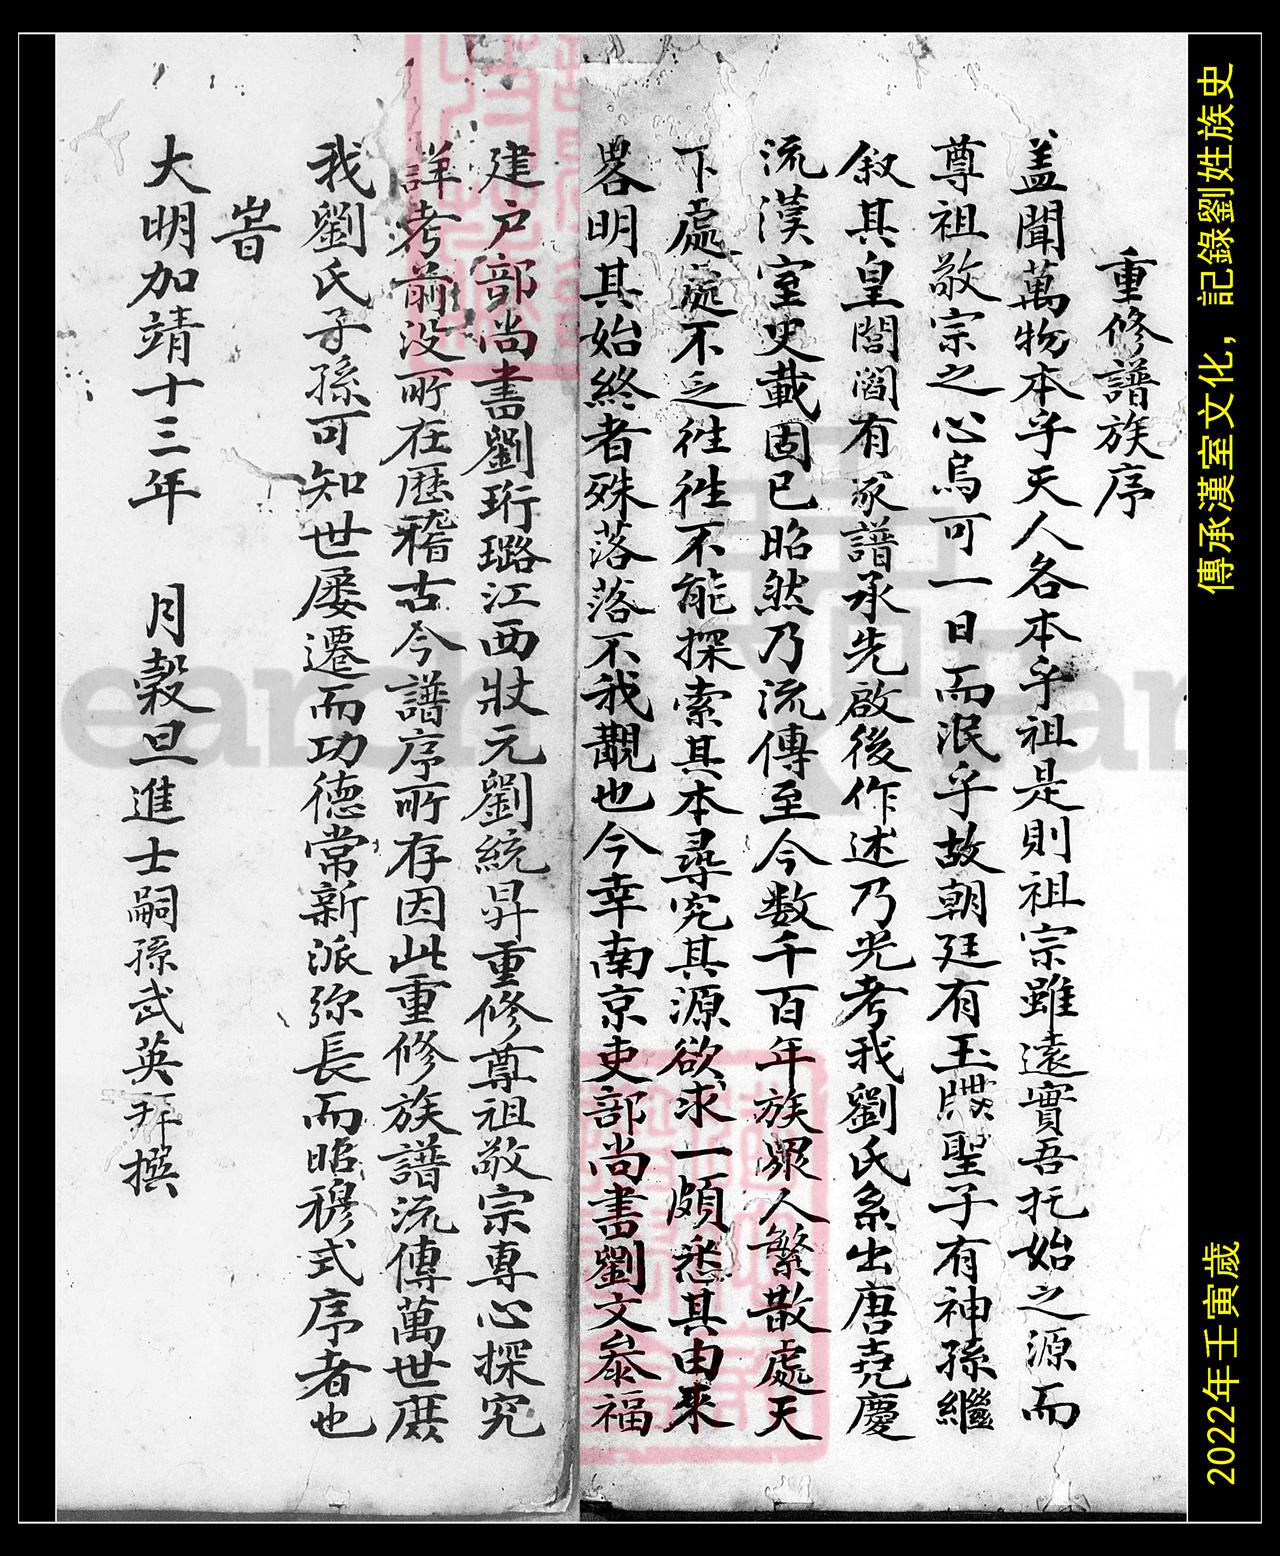 傳承漢室文化，記錄劉姓族史
2022年壬寅歲
重修譜族序
盖聞萬物本乎天人各本乎祖是則祖宗雖遠實吾托始之源而
尊祖敬宗之心烏可一日而泯乎故朝廷有玉牒聖子有神孫繼
叙其皇閭閻有家譜承先啟後作述乃光考我劉氏系出唐堯慶
流漢室史載固已昭然乃流傳至今数千百年族眾人繁散處天
下處處不乏徃徃不能探索其本尋究其源欲求一頗悉其由来
畧明其始終者殊落落不我覯也今幸南京吏部尚書劉文叅福
建户部尚書劉珩璐江西狀元劉統昇重修尊祖敬宗專心探究
詳考前没所在歴稽古今譜序所存因此重修族譜流傳萬世庻
我劉氏子孫可知世屡遷而功德常新派弥長而昭穆式序者也
旹
大明加靖十三年 月穀旦進士嗣孫武英拜撰
earch
Fam